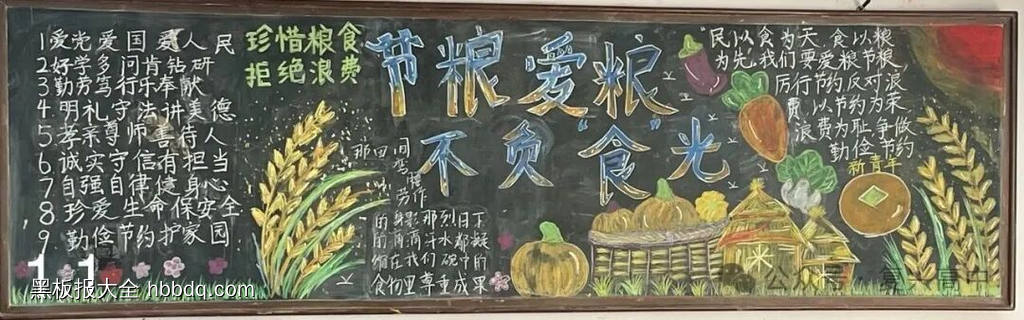 1爱党爱国爱人民
2好学多问肯钻研
3勤劳笃行乐奉献
4明礼守法讲美德
5孝亲尊师善待人
6诚实守信有担当
7自强自律健身心
8珍爱生命保安全
9勤俭节约护家园
珍惜粮食
拒绝浪费
节粮爱粮
不负“食”光
那田间
弯腰
劳作
的身影那烈日下
的滴汗水都凝
缩在我们碗中的
食物里尊重成果
“民以食为天，食以粮
为先”我们要爱粮节粮
厉行节约反对浪
费以节约为荣
浪费为耻争做
勤俭节约
新青年
1.1
黑板报大全 hbbdq.com
公众号·复兴高中